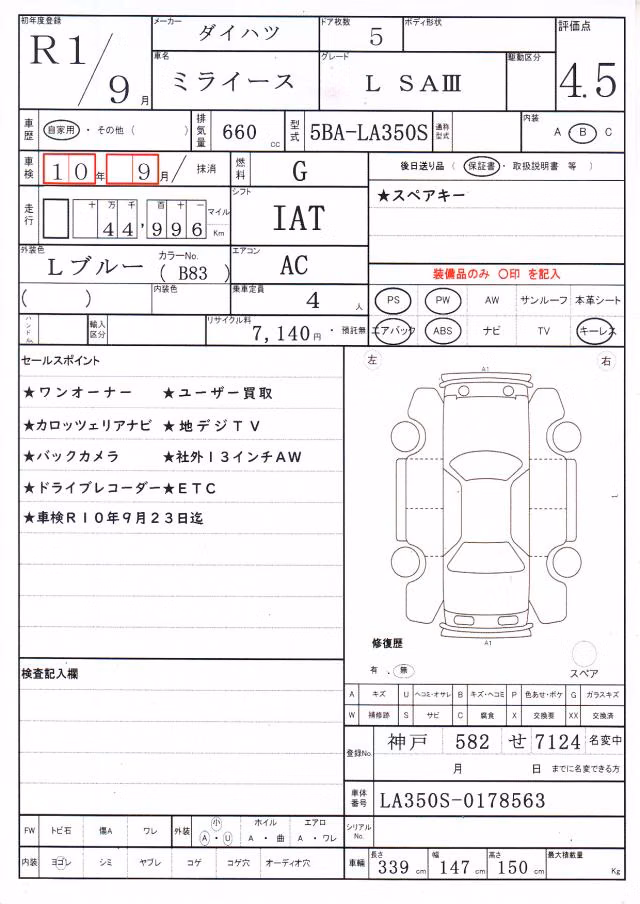 初年度登録 メーカー ダイハツ ドア枚数 5 ボディ形状 評価点
R1/9月 車名 ミライース グレード L SAⅢ 駆動区分 4.5
車歴 自家用・その他( ) 排気量 660 cc 型式 5BA-LA350S 通称型式 内装 A・B C
車検 10年 9月/ 抹消 燃料 G 後日送り品 (保証書・取扱説明書 等 )
走行 十万千百十一 44,996 マイル Km シフト IAT ★スペアキー
外装色 Lブルー カラーNo. ( B83 ) エアコン AC 装備品のみ 〇印 を記入
( ) 内装色 乗車定員 4 人 PS PW AW サンルーフ 本革シート
ハンドル 輸入区分 リサイクル料 7,140円・預託無 エアバック ABS ナビ TV キーレス
セールスポイント 左 右
A1
★ワンオーナー ★ユーザー買取
★カロッツェリアナビ ★地デジTV
★バックカメラ ★社外13インチAW
★ドライブレコーダー★ETC
★車検R10年9月23日迄
A1
修復歴
有 . 無 スペア
検査記入欄
A キズ U ヘコミ・オサレ B キズ・ヘコミ P 色あせ・ボケ G ガラスキズ
W 補修跡 S サビ C 腐食 X 交換要 XX 交換済
登録No. 神戸 582 せ 7124 名変中
月 日 までに名変できる方
車体番号 LA350S-0178563
FW トビ石 傷A ワレ 外装 小 A・U ホイル A・曲 エアロ A・ワレ シリアルNo.
内装 ヨゴレ シミ ヤブレ コゲ コゲ穴 オーディオ穴 車輌 長さ 339 cm 幅 147 cm 高さ 150 cm 最大積載量 Kg